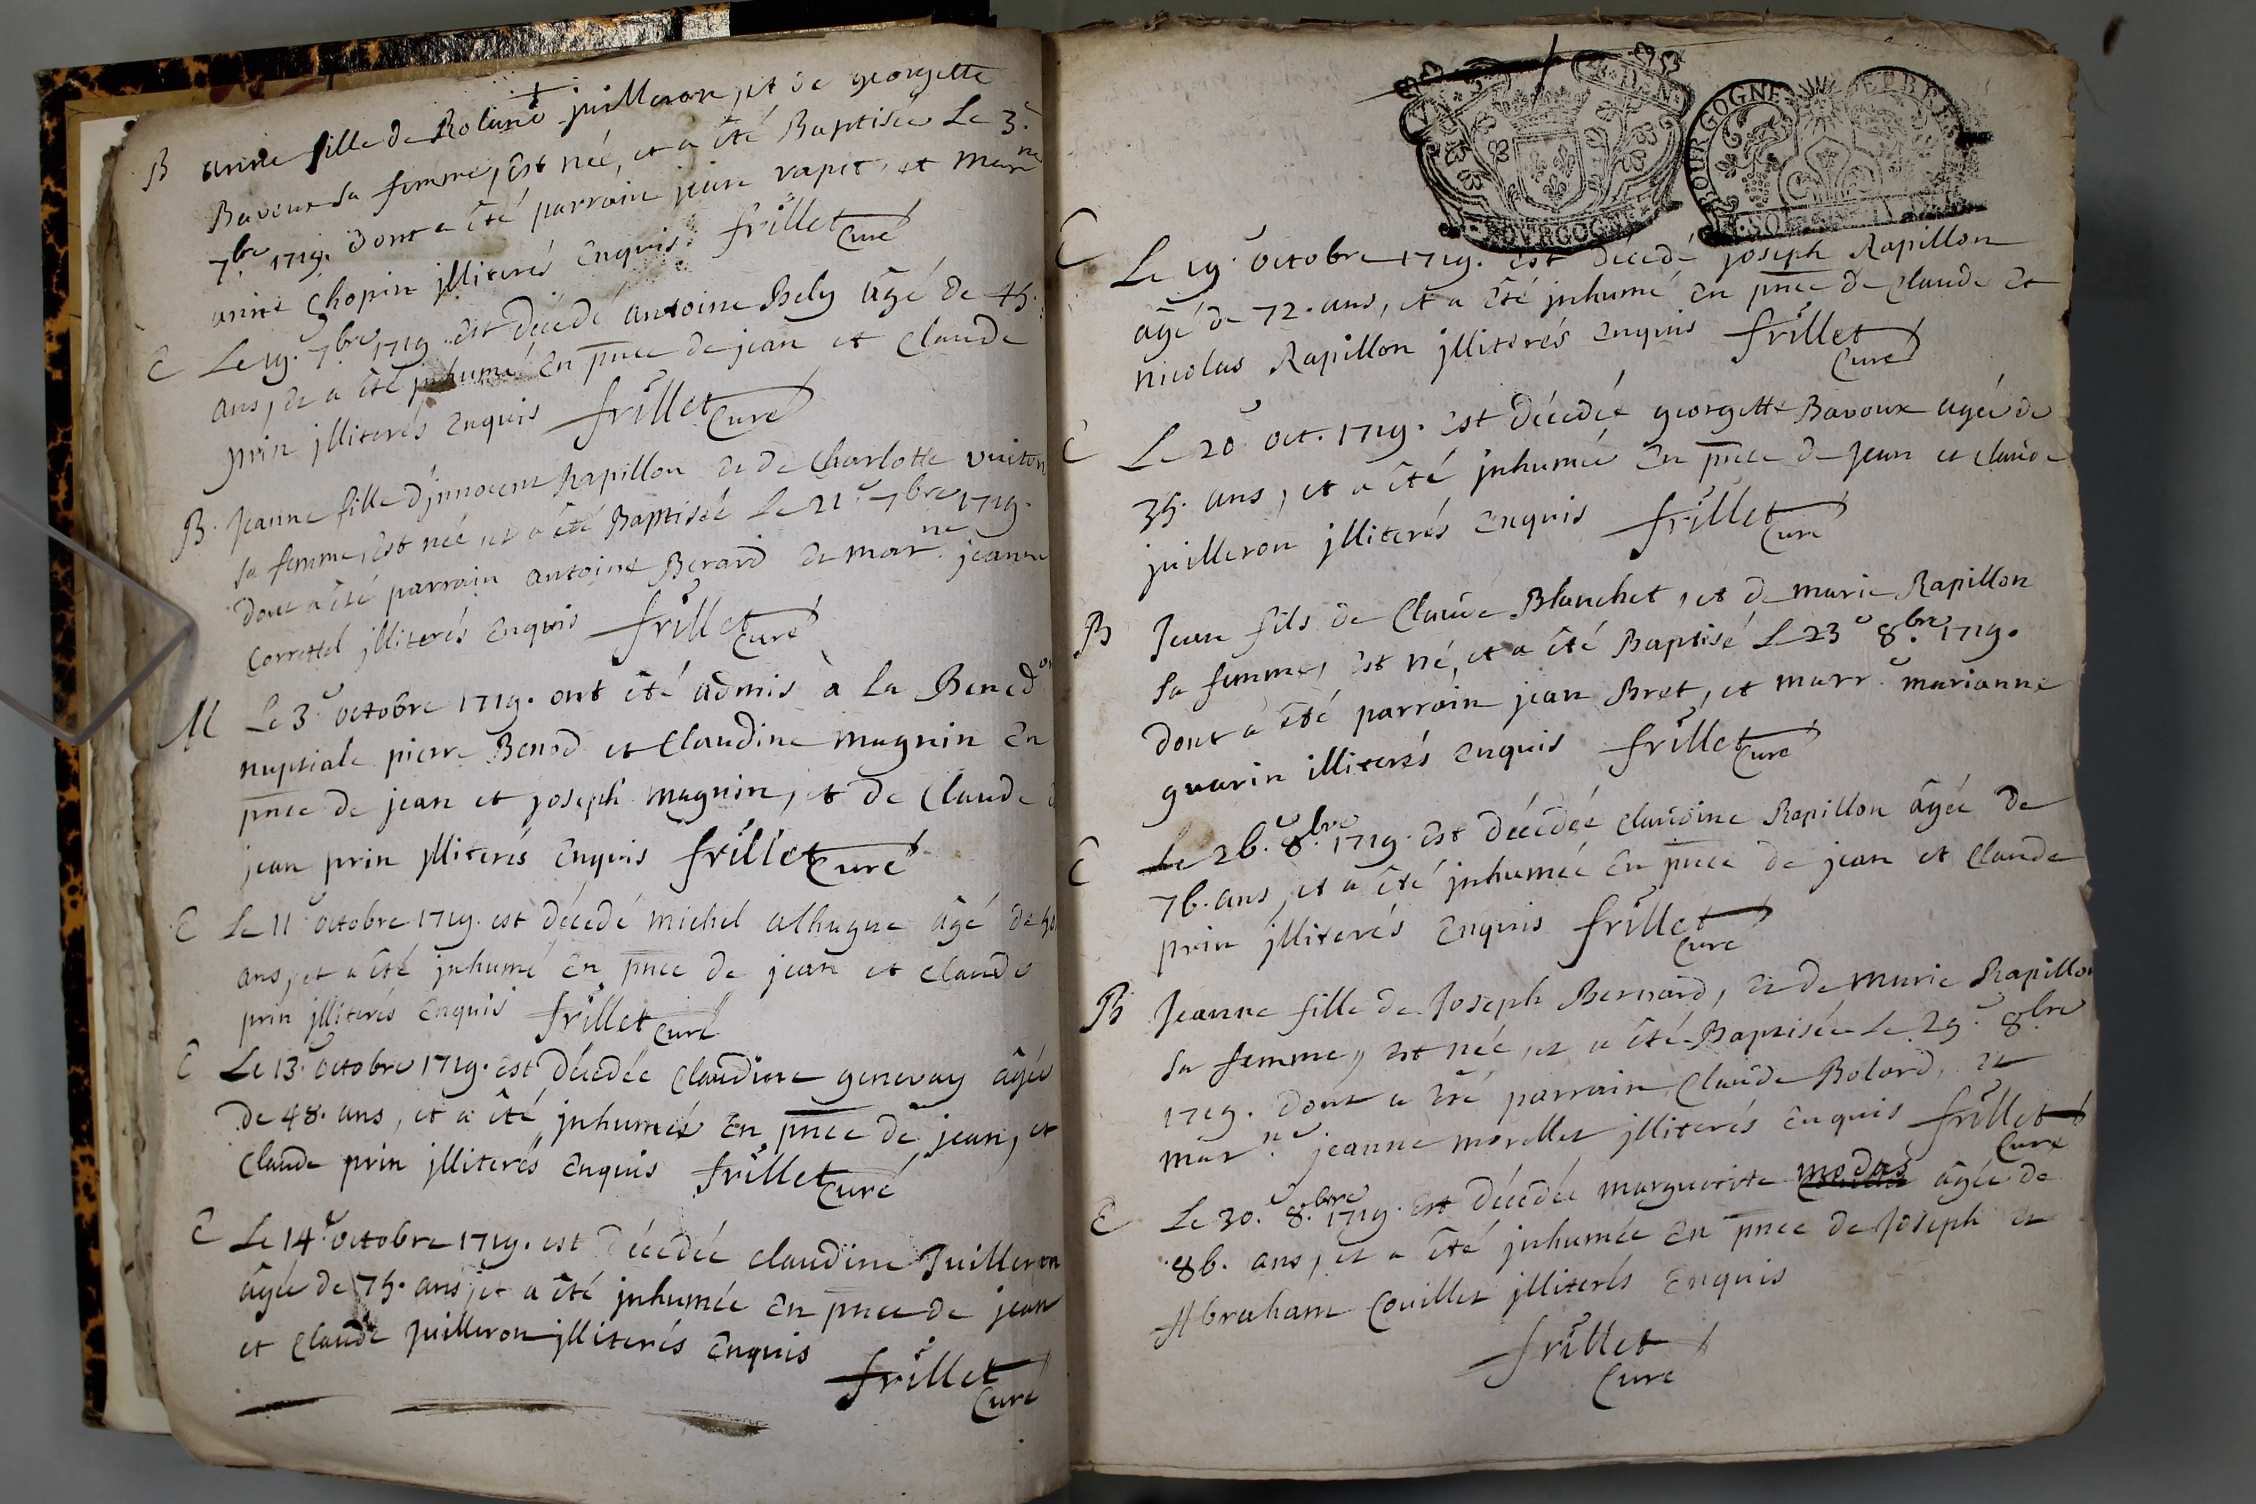 B anne fille de Roland juilleron, et de georgette
Bavoux sa femme, est née, et a été Baptisée Le 3.e
7.bre 1719. dont a été parrain jean vapet, et mar.ne
anne Chopin jlliterés Enquis. frillet Curé
E Le 19. 7.bre 1719. est décedé antoine Bely âgé de 45.
ans, et a été jnhumé En pnce de jean et Claude
prin jlliterés Enquis frillet Curé
B. Jeanne fille d'jnnocent Rapillon et de Charlotte vuiton
sa femme, est née, et a été Baptisée Le 21.e 7.bre 1719.
dont a été parrain antoine Berard et mar.ne jeanne
Correttel jlliterés Enquis frillet Curé
M Le 3.e octobre 1719. ont été admis à La Bened.on
nuptiale pierre Benod et Claudine magnin En
pnce de jean et joseph magnin, et de Claude
jean prin jlliterés Enquis frillet Curé
E Le 11.e octobre 1719. est décedé michel alhugue âgé de
ans, et a été jnhumé En pnce de jean et Claude
prin jlliterés Enquis frillet Curé
E Le 13.e octobre 1719. est décedée Claudine genevay âgée
de 48. ans, et a été jnhumée En pnce de jean, et
Claude prin jlliterés Enquis frillet Curé
E Le 14.e octobre 1719. est décedée Claudine Juilleron
âgée de 75. ans, et a été jnhumée En pnce de jean
et Claude Juilleron jlliterés Enquis frillet
Curé
BOURGOGNE
BOURGOGNE
E Le 19.e octobre 1719. est décedé joseph Rapillon
âgé de 72. ans, et a été jnhumé En pnce de Claude Et
nicolas Rapillon jlliterés Enquis frillet Curé
E Le 20.e oct. 1719. est décedée georgette Bavoux agée de
35. ans, et a été jnhumée En pnce de Jean et Claude
juilleron jlliterés Enquis frillet Curé
B Jean fils de Claude Blanchet, et de marie Rapillon
sa femme, est né, et a été Baptisé Le 23.e 8.bre 1719.
dont a été parrain jean Bret, et marr.e marianne
guarin illiterés Enquis frillet Curé
E Le 26.e 8.bre 1719. est décedée Claudine Rapillon âgée de
76. ans, et a été jnhumée En pnce de jean et Claude
prin jlliterés Enquis frillet Curé
B Jeanne fille de Joseph Bernard, et de marie Rapillon
sa femme, est née, et a été Baptisée Le 29.e 8.bre
1719. dont a été parrain Claude Bolard, et
mar.ne jeanne morellet jlliterés Enquis frillet Curé
E Le 30.e 8.bre 1719. est décedée marguerite modas âgée de
86. ans, et a été jnhumée En pnce de Joseph et
Abraham Couillet jlliterés Enquis
frillet
Curé